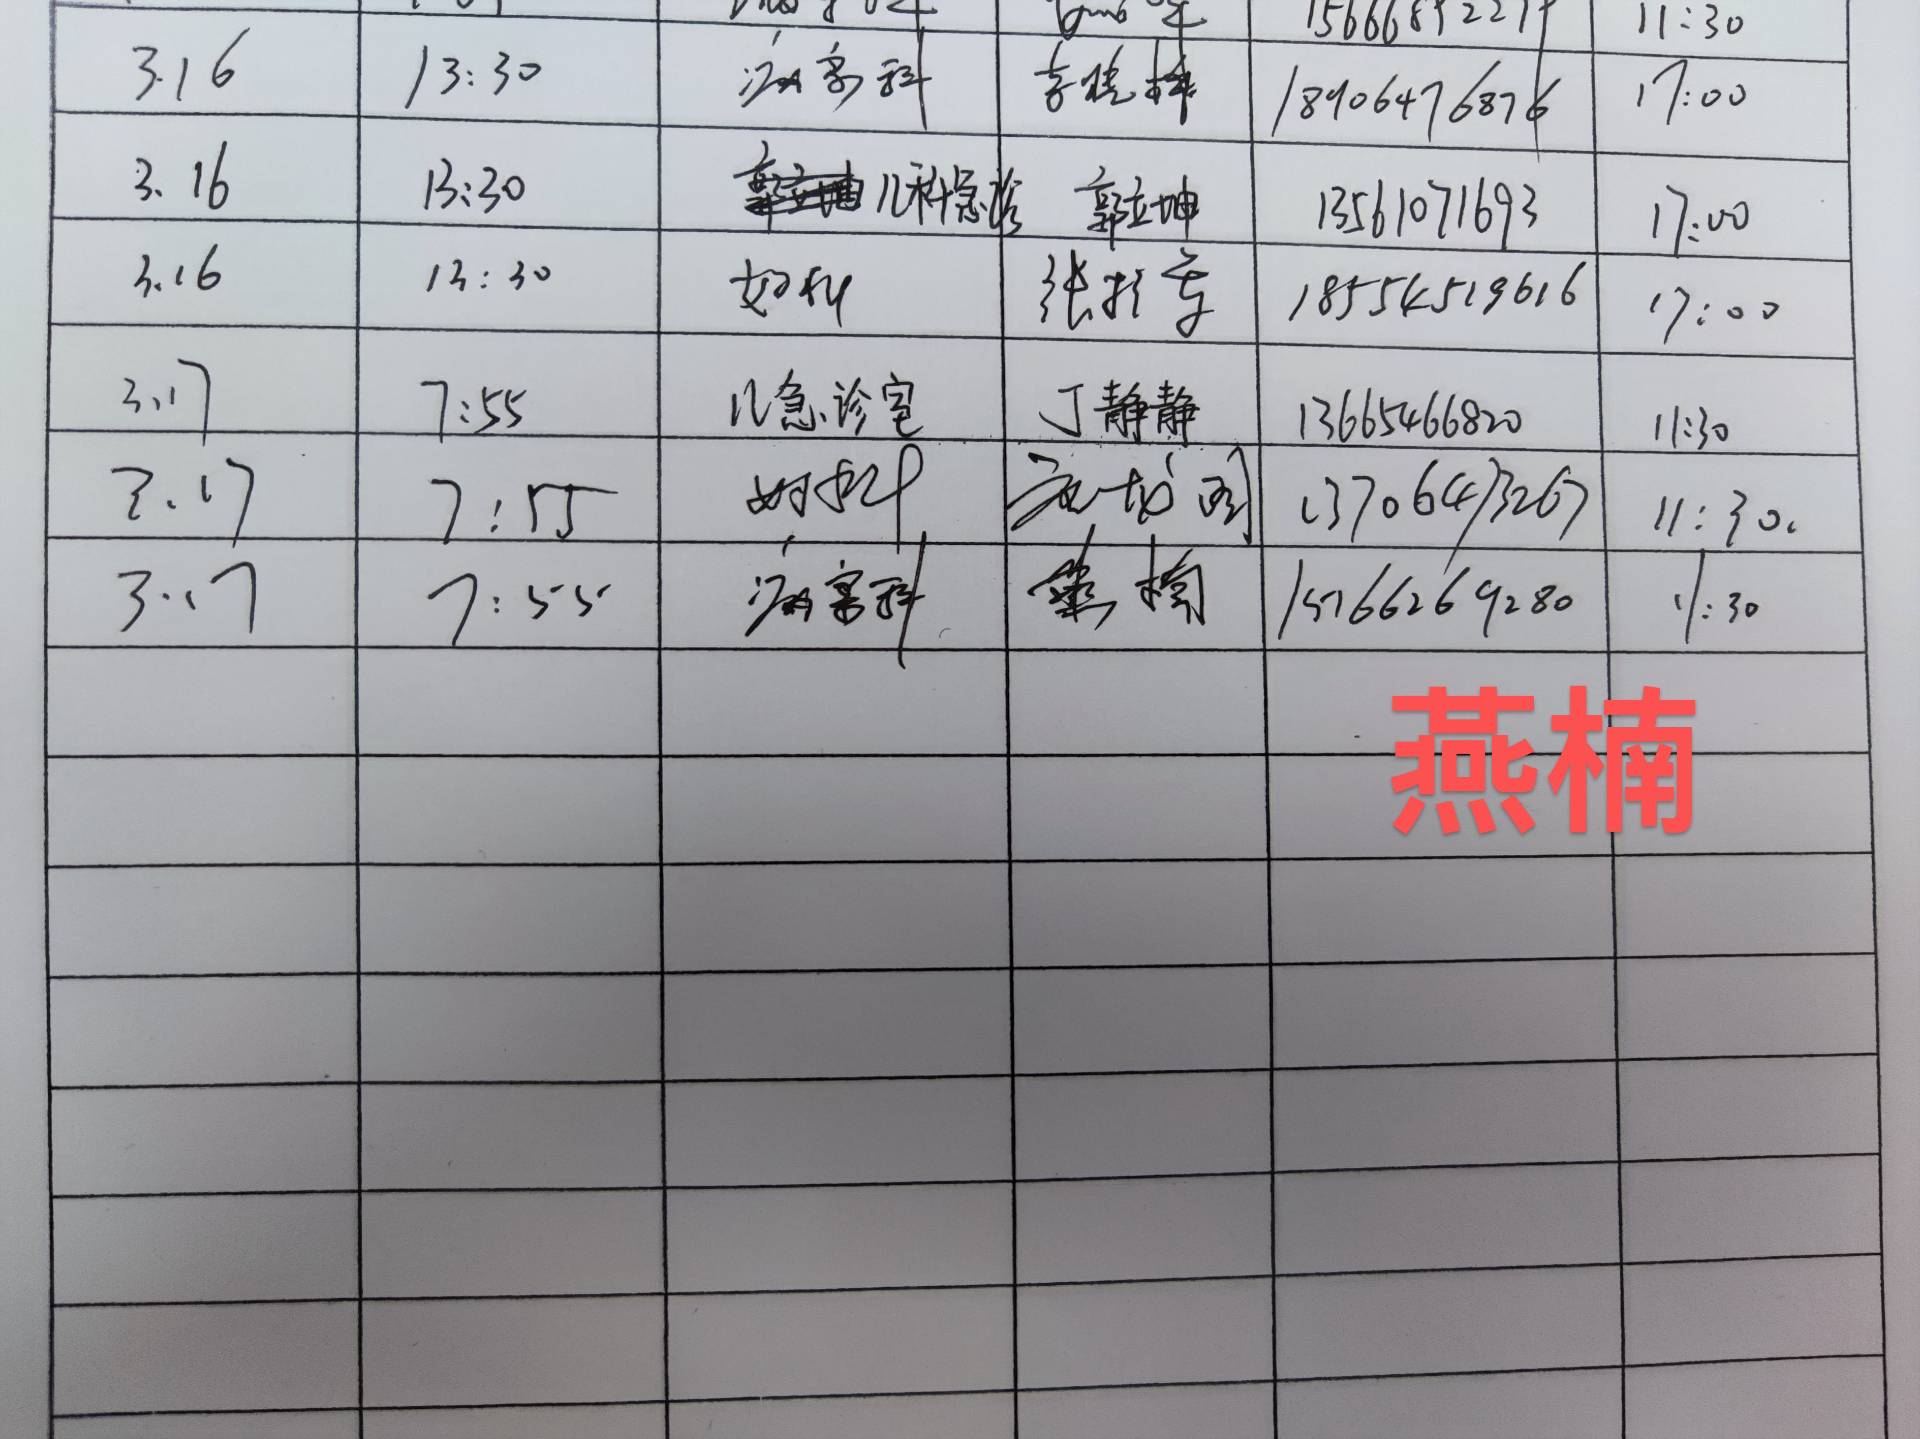 11:30
3.16 13:30 病案科 李晓 18906476876 17:00
3.16 13:30 儿科急诊 郭立坤 13561071693 17:00
3.16 13:30 妇科 张 18554519616 17:00
3.17 7:55 儿急诊室 丁静静 13665466820 11:30
3.17 7:55 妇科 13706473267 11:30.
3.17 7:55 病案科 燕楠 15766269280 11:30
燕楠